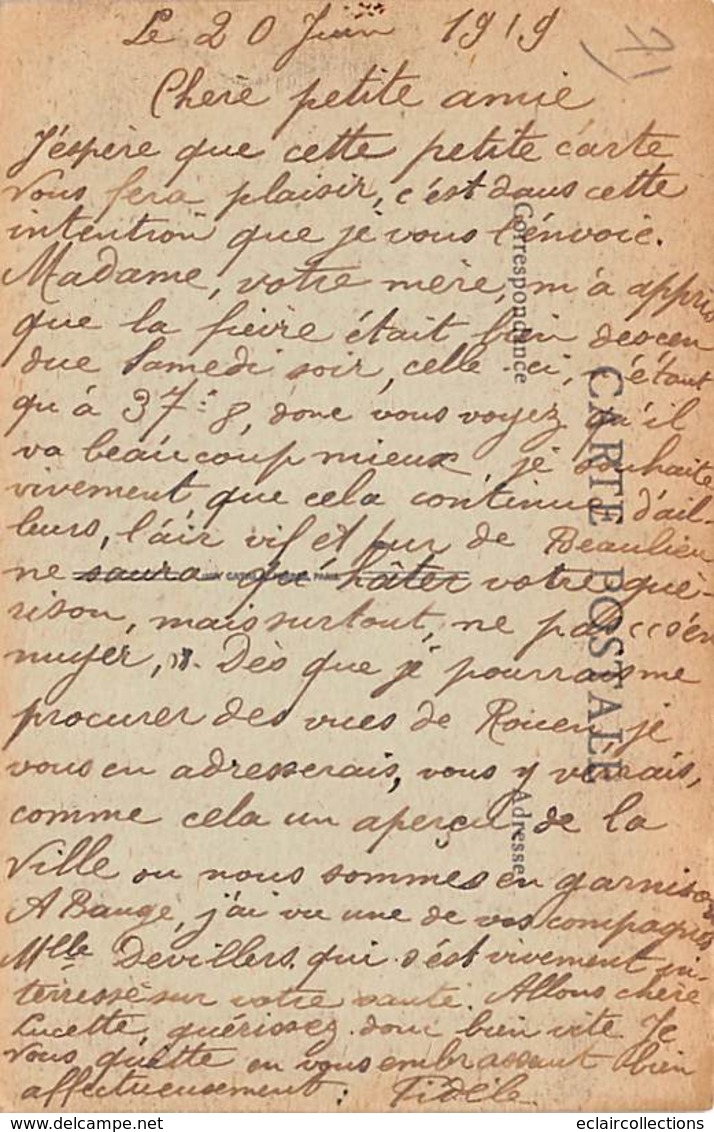 Le 20 Juin 1919
7)
Chère petite amie
J'éspère que cette petite carte
vous fera plaisir, c'ést dans cette
intention que je vous l'énvoie.
Madame, votre mère, m'a appris
que la fièvre était bien descen
due Samedi soir, celle-ci, n'étant
qu'à 37°8, donc vous voyez qu'il
va beaucoup mieux, je souhaite
vivement que cela continue, d'ail-
leurs, l'air vif et pur de Beaulieu
ne saura qu'hâter votre gué-
rison, mais surtout, ne pas s'én
nuyer, Dès que je pourrais me
procurer des vues de Rouen, je
vous en adresserais, vous y verrais,
comme cela un aperçu de la
Ville ou nous sommes en garnison
A Bauge, j'ai vu une de vos compagnes
Mlle Devillers. qui s'ést vivement in-
terressé sur votre santé. Allons chère
Lucette, guérissez donc bien vite Je
vous quitte en vous embrassant bien
affectueusement: Fidèle
Correspondance
CARTE POSTALE
Adresse
eclaircollections